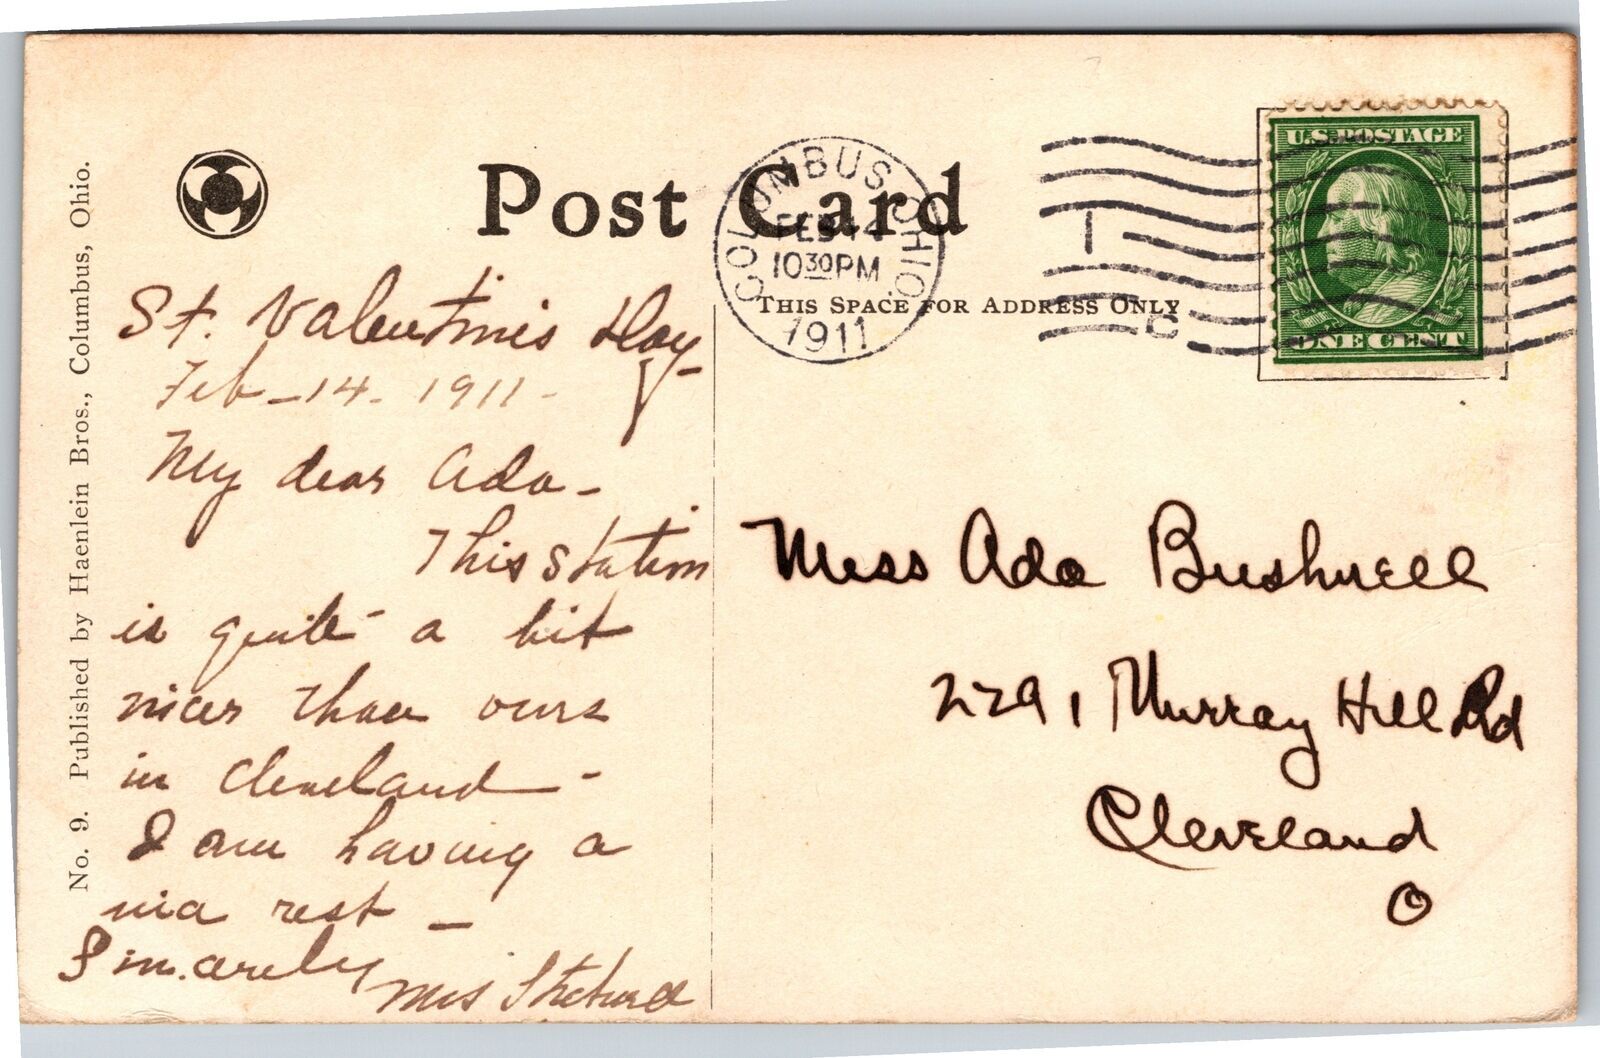 No. 9. Published by Haenlein Bros., Columbus, Ohio.
Post Card
COLUMBUS, OHIO
FEB 14
10 30 PM
1911
1
C
U.S. POSTAGE
ONE CENT
THIS SPACE FOR ADDRESS ONLY
St. Valentines Day
Feb - 14 - 1911 -
My dear Ada -
This station
is quite a bit
nicer than ours
in Cleveland -
I am having a
nice rest -
Sincerely
Mrs
Miss Ada Bushnell
2291 Murray Hill Rd
Cleveland
O